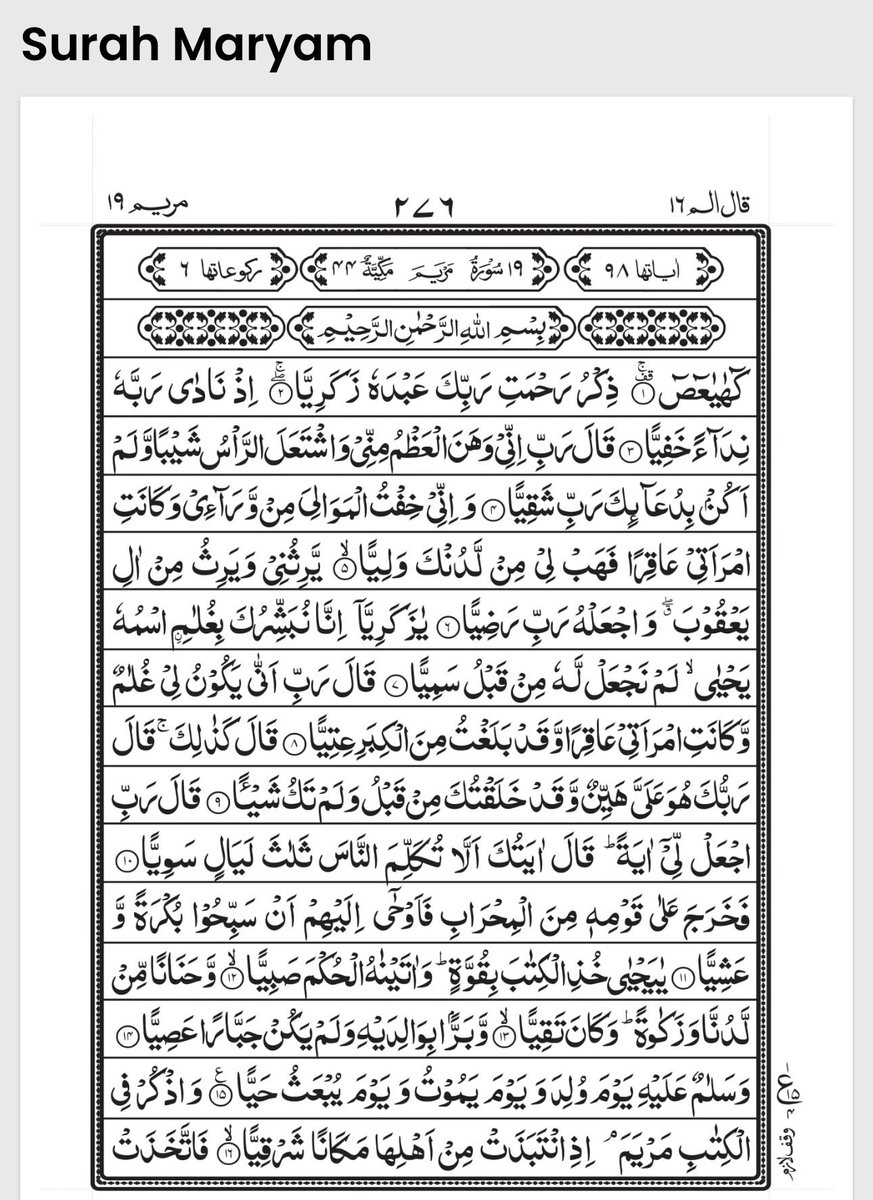 Surah Maryam
قال الم ١٦ ٢٧٦ مريم ١٩
اٰیاتها ٩٨ ١٩ سُوْرَةُ مَرْیَمَ مَكِّیَّةٌ ٤٤ ركوعاتها ٦
بِسْمِ اللّٰهِ الرَّحْمٰنِ الرَّحِیْمِ
كٓهٰیٰعٓصٓ ۚ۝١ ذِكْرُ رَحْمَتِ رَبِّكَ عَبْدَهٗ زَكَرِیَّا ۖۚ۝٢ اِذْ نَادٰی رَبَّهٗ
نِدَآءً خَفِیًّا ۝٣ قَالَ رَبِّ اِنِّیْ وَهَنَ الْعَظْمُ مِنِّیْ وَاشْتَعَلَ الرَّاْسُ شَیْبًا وَّلَمْ
اَكُنْۢ بِدُعَآئِكَ رَبِّ شَقِیًّا ۝٤ وَ اِنِّیْ خِفْتُ الْمَوَالِیَ مِنْ وَّرَآءِیْ وَكَانَتِ
امْرَاَتِیْ عَاقِرًا فَهَبْ لِیْ مِنْ لَّدُنْكَ وَلِیًّا ۙ۝٥ یَّرِثُنِیْ وَیَرِثُ مِنْ اٰلِ
یَعْقُوْبَ ۖۗ وَاجْعَلْهُ رَبِّ رَضِیًّا ۝٦ یٰزَكَرِیَّاۤ اِنَّا نُبَشِّرُكَ بِغُلٰمِ ِ۟اسْمُهٗ
یَحْیٰی ۙ لَمْ نَجْعَلْ لَّهٗ مِنْ قَبْلُ سَمِیًّا ۝٧ قَالَ رَبِّ اَنّٰی یَكُوْنُ لِیْ غُلٰمٌ
وَّكَانَتِ امْرَاَتِیْ عَاقِرًا وَّقَدْ بَلَغْتُ مِنَ الْكِبَرِ عِتِیًّا ۝٨ قَالَ كَذٰلِكَ ۚ قَالَ
رَبُّكَ هُوَ عَلَیَّ هَیِّنٌ وَّقَدْ خَلَقْتُكَ مِنْ قَبْلُ وَلَمْ تَكُ شَیْـًٔا ۝٩ قَالَ رَبِّ
اجْعَلْ لِّیْۤ اٰیَةً ؕ قَالَ اٰیَتُكَ اَلَّا تُكَلِّمَ النَّاسَ ثَلٰثَ لَیَالٍ سَوِیًّا ۝١٠
فَخَرَجَ عَلٰی قَوْمِهٖ مِنَ الْمِحْرَابِ فَاَوْحٰۤی اِلَیْهِمْ اَنْ سَبِّحُوْا بُكْرَةً وَّ
عَشِیًّا ۝١١ یٰیَحْیٰی خُذِ الْكِتٰبَ بِقُوَّةٍ ؕ وَاٰتَیْنٰهُ الْحُكْمَ صَبِیًّا ۙ۝١٢ وَّحَنَانًا مِّنْ
لَّدُنَّا وَزَكٰوةً ؕ وَكَانَ تَقِیًّا ۙ۝١٣ وَّبَرًّۢا بِوَالِدَیْهِ وَلَمْ یَكُنْ جَبَّارًا عَصِیًّا ۝١٤
وَسَلٰمٌ عَلَیْهِ یَوْمَ وُلِدَ وَ یَوْمَ یَمُوْتُ وَ یَوْمَ یُبْعَثُ حَیًّا ۝١٥ ع وَاذْكُرْ فِی
الْكِتٰبِ مَرْیَمَ ۘ اِذِ انْتَبَذَتْ مِنْ اَهْلِهَا مَكَانًا شَرْقِیًّا ۙ۝١٦ فَاتَّخَذَتْ
ع ١٥
وقف لازم